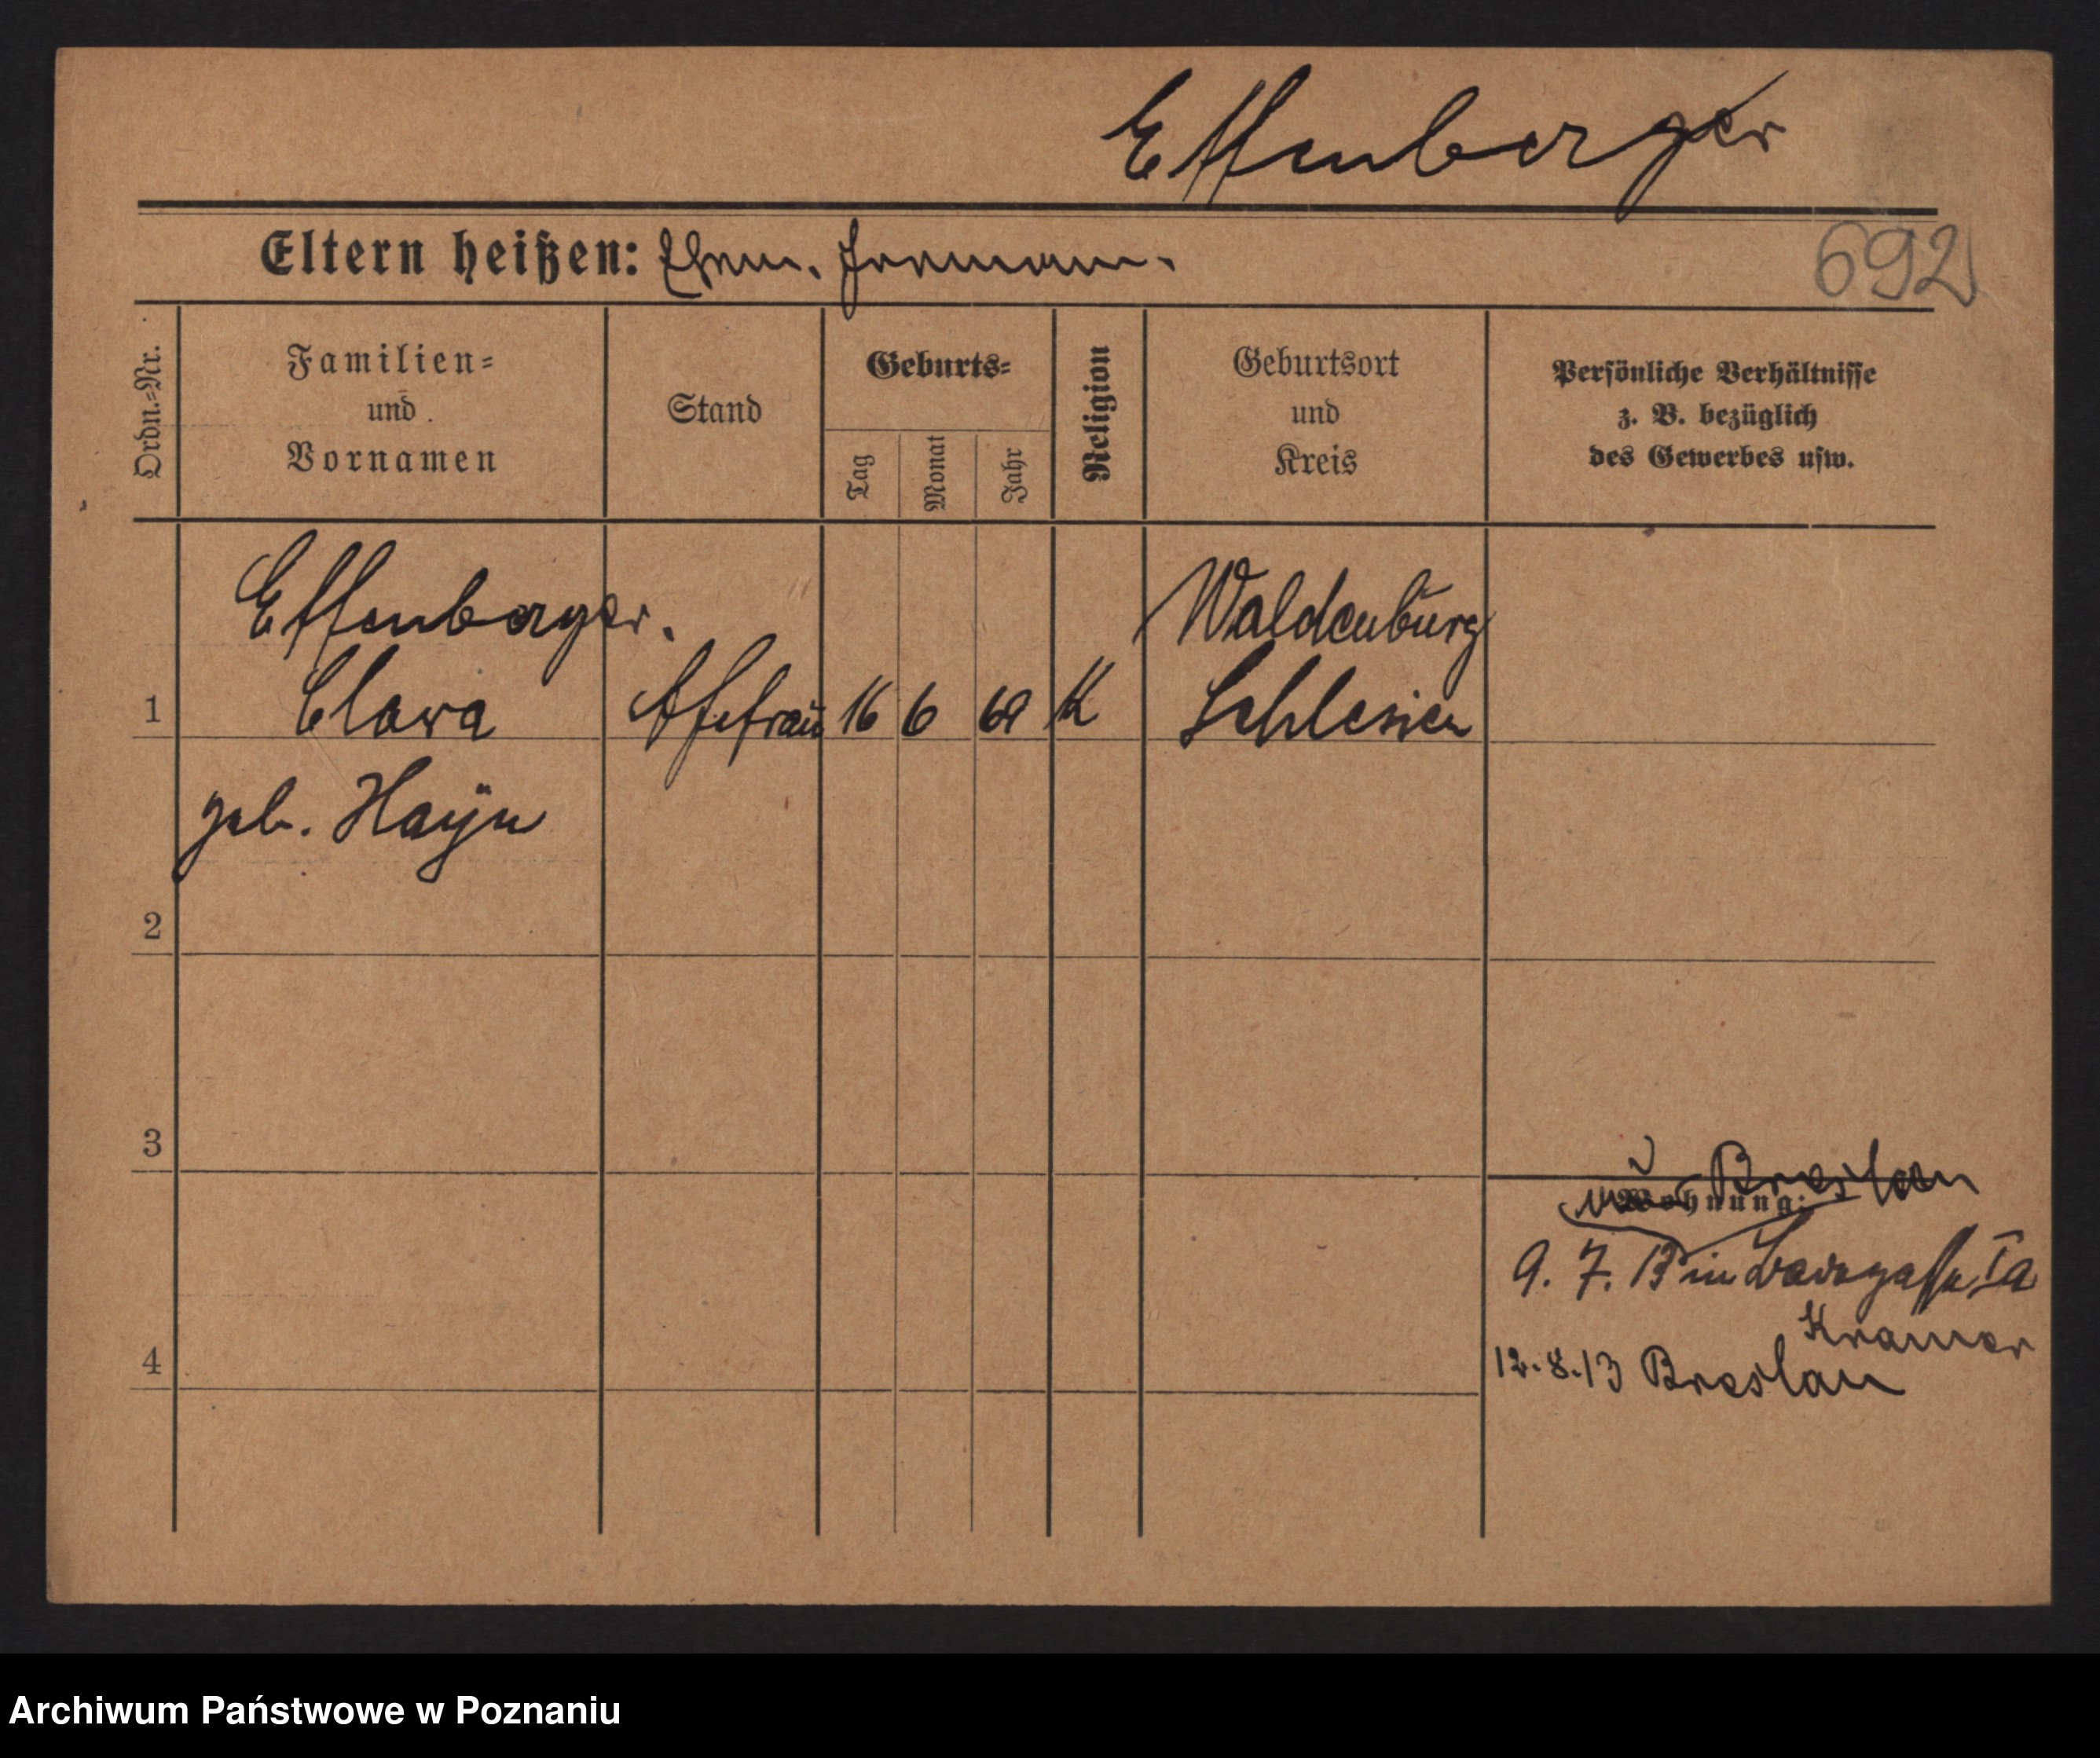 Effenberger
Eltern heißen: Ehem. Hermann.
692
Ordn.=Nr.
Familien=
und
Vornamen
Stand
Geburts=
Tag
Monat
Jahr
Religion
Geburtsort
und
Kreis
Persönliche Verhältnisse
z. B. bezüglich
des Gewerbes usw.
Effenberger.
Waldenburg
1 Clara Ehefrau 16 6 69 K Schlesien
geb. Hayn
2
3
v Breslau
Wohnung:
9. 7. 13 in
Kramer
4
12.8.13 Breslau
Archiwum Państwowe w Poznaniu